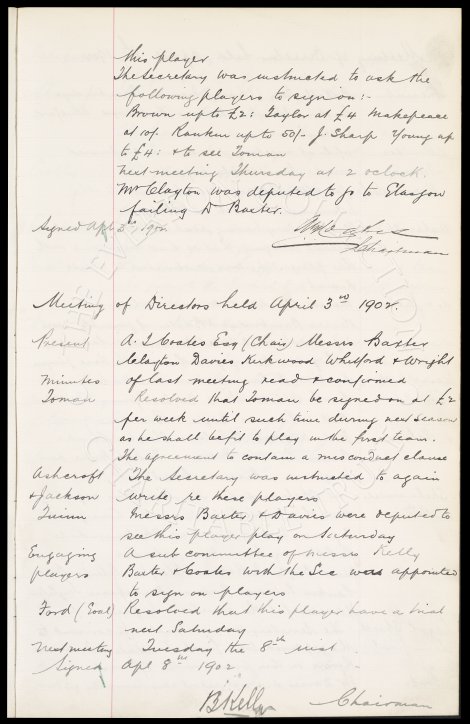 this player
The Secretary was instructed to ask the
following players to sign on:-
Brown up to £2: Taylor at £4 Makepeace
at 10/- Rankin up to 50/- J. Sharp Young up
to £4: & to see Toman
next meeting Thursday at 2 oclock.
Mr Clayton was deputed to go to Glasgow
failing Dr Baxter.
Signed Apl 3rd, 1902.
Chairman
Meeting of Directors held April 3rd 1902.
Present A. T Coates Esq (Chair) Messrs Baxter
Clayton Davies Kirkwood Whitford & Wright
Minutes of last meeting read & confirmed
Toman Resolved that Toman be signed on at £2
per week until such time during next season
as he shall be fit to play in the first team.
The agreement to contain a misconduct clause
Ashcroft The Secretary was instructed to again
& Jackson write re these players
Quinn Messrs Baxter & Davies were deputed to
see this player play on Saturday
Engaging A sub committee of Messrs Kelly
players Baxter & Coates with the Sec was appointed
to sign on players
Ford (Goal) Resolved that this player have a trial
next Saturday
next meeting Tuesday the 8th inst.
Signed Apl 8th 1902
B Kelly Chairman